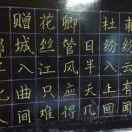 赠花卿 杜
城丝管日纷
入江风半入云
曲只应天上有
间难得几回